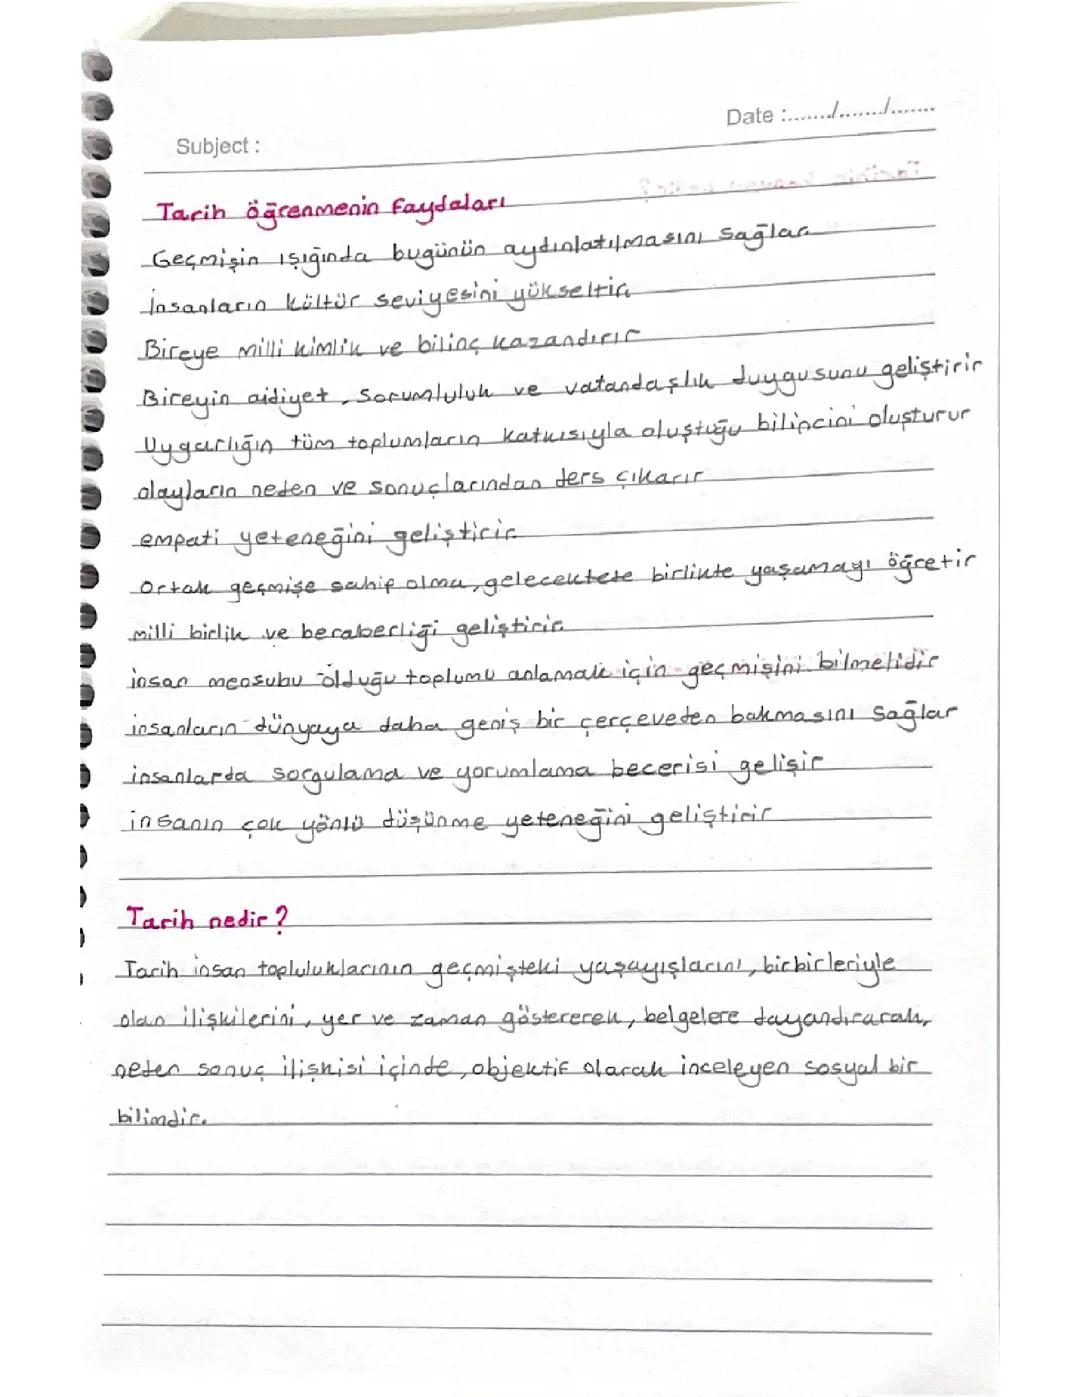 Date :......./......./.......
Subject :
Tarih öğrenmenin faydaları
Geçmişin ışığında bugünün aydınlatılmasını sağlar
İnsanların kültür seviyesini yükseltir
Bireye milli kimlik ve bilinç kazandırır
Bireyin aidiyet, sorumluluk ve vatandaşlık duygusunu geliştirir
Uygarlığın tüm toplumların katkısıyla oluştuğu bilincini oluşturur
olayların neden ve sonuçlarından ders çıkarır
empati yeteneğini geliştirir
ortak geçmişe sahip olma, gelecektede birlikte yaşamayı öğretir
milli birlik ve beraberliği geliştirir
insan mensubu olduğu toplumu anlamak için geçmişini bilmelidir
insanların dünyaya daha geniş bir çerçeveden bakmasını sağlar
insanlarda sorgulama ve yorumlama becerisi gelişir
insanın çok yönlü düşünme yeteneğini geliştirir
Tarih nedir?
Tarih insan topluluklarının geçmişteki yaşayışlarını, birbirleriyle
olan ilişkilerini, yer ve zaman göstererek, belgelere dayandırarak,
neden sonuç ilişkisi içinde, objektif olarak inceleyen sosyal bir
bilimdir.